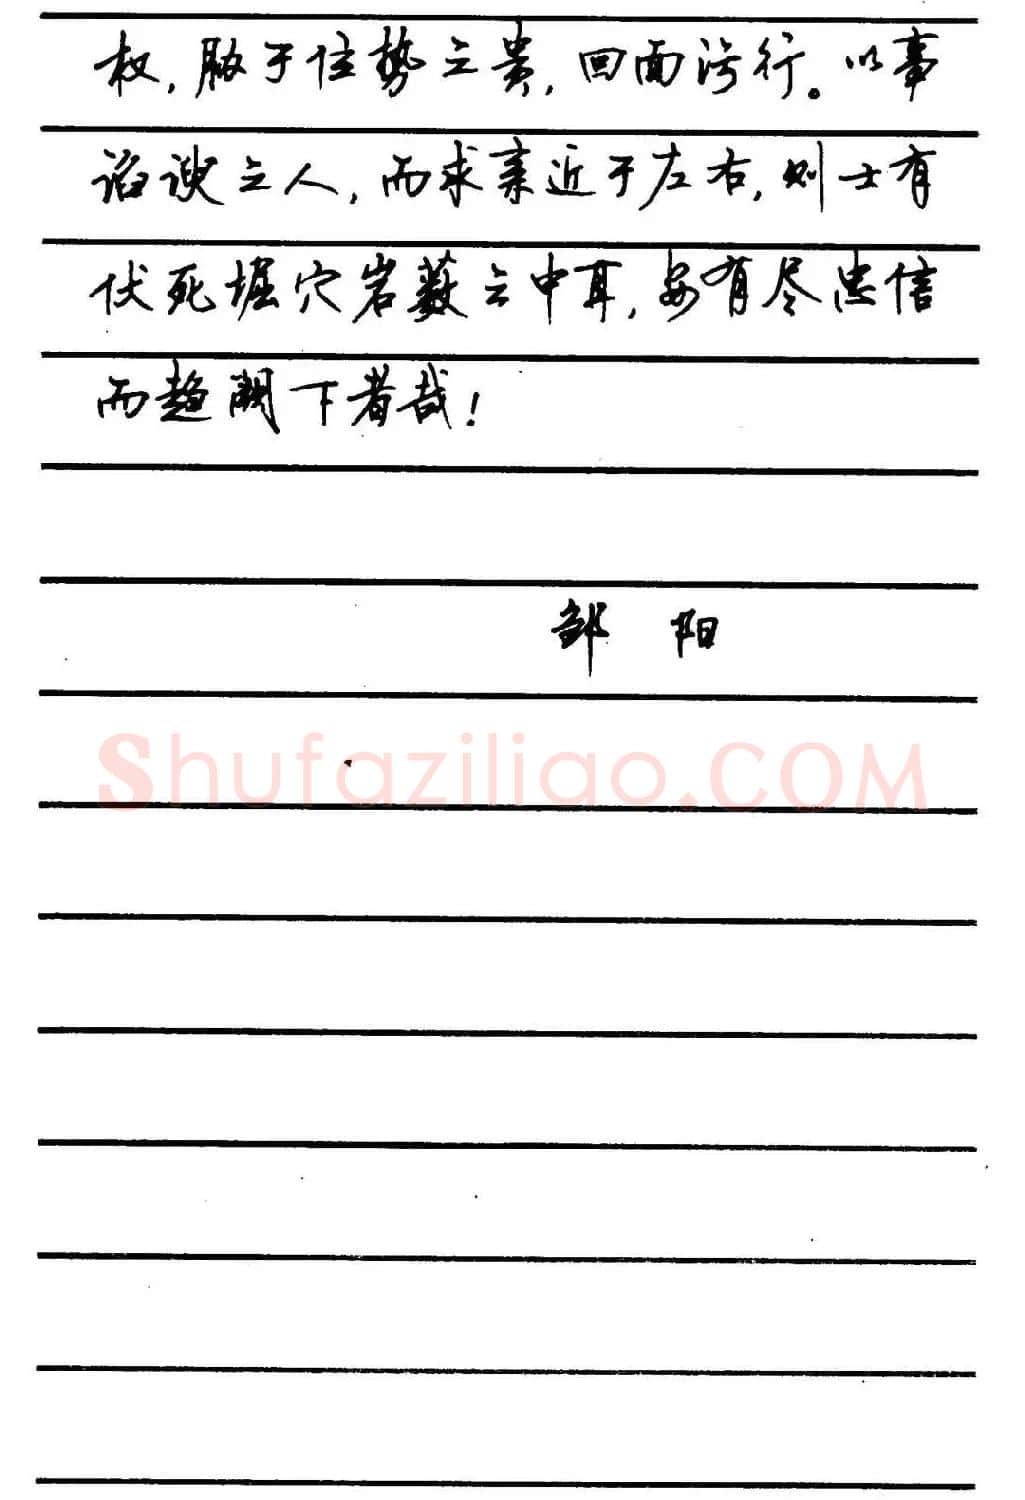 权，胁于位势之贵，回面污行。以事
谄谀之人，而求亲近于左右，则士有
伏死堀穴岩薮之中耳，安有尽忠信
而趋阙下者哉！
邹 阳
Shufaziliao.COM